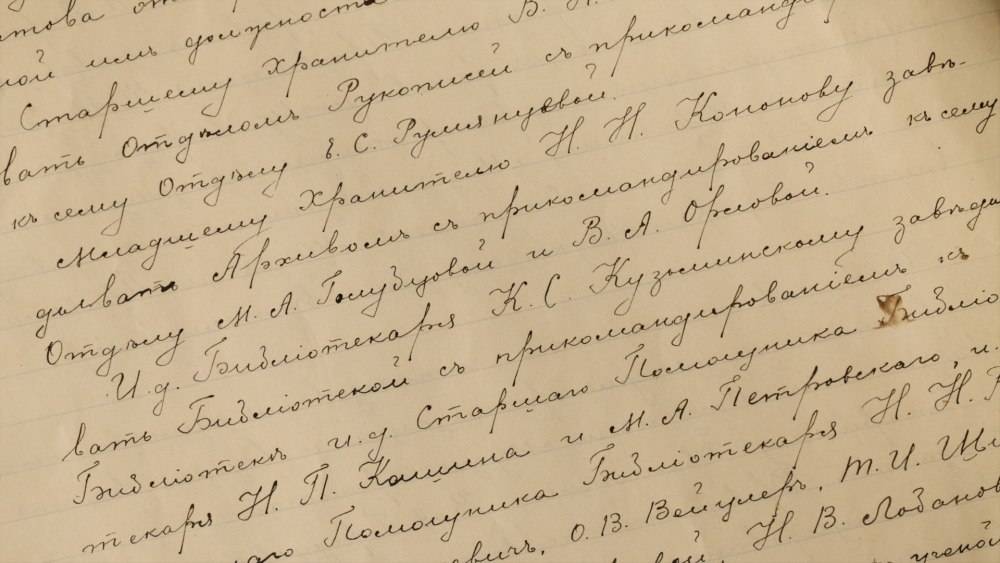 ной имъ должности
Старшему Хранителю В.
вать Отдѣломъ Рукописей съ прикоманди
къ сему Отдѣлу Е. С. Румянцевой.
Младшему Хранителю Н. Н. Кононову завѣ-
дывать Архивомъ съ прикомандированіемъ къ сему
Отдѣлу М. А. Голубцовой и В. А. Орловой.
И. д. Библіотекаря К. С. Кузьминскому завѣды
вать Библіотекой съ прикомандированіемъ къ
Библіотекѣ и. д. Старшаго Помощника Библіо
текаря Н. П. Кашина и М. А. Петровскаго, и.
Помощника Библіотекаря Н. Н.
евичъ, О. В. Вейцлеръ, Т. И.
Н. В. Лобанов
ученой